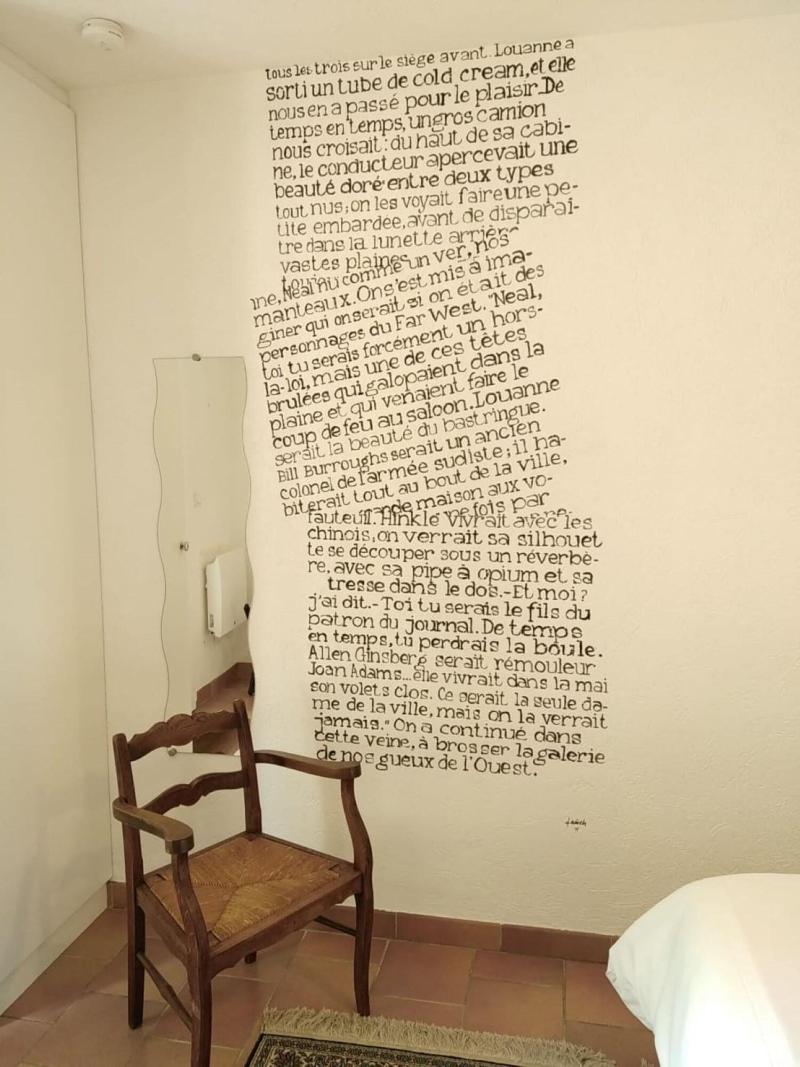 tous les trois sur le siège avant. Louanne a
sorti un tube de cold cream, et elle
nous en a passé pour le plaisir. De
temps en temps, un gros camion
nous croisait : du haut de sa cabi-
ne, le conducteur apercevait une
beauté doré entre deux types
tout nus ; on les voyait faire une pe-
tite embardée, avant de disparaî-
tre dans la lunette arrière
vastes plaines
ne, Neal nu comme un ver, nos
manteaux. On s'est mis à ima-
giner qui on serait si on était des
personnages du Far West. "Neal,
toi tu serais forcément un hors-
la-loi, mais une de ces têtes
brulées qui galopaient dans la
plaine et qui venaient faire le
coup de feu au saloon. Louanne
serait la beauté du bastringue.
Bill Burroughs serait un ancien
colonel de l'armée sudiste ; il ha-
biterait tout au bout de la ville,
grande maison aux vo-
une fois par
fauteuil. Hinkle vivrait avec les
chinois, on verrait sa silhouet
te se découper sous un réverbè-
re, avec sa pipe à opium et sa
tresse dans le dos. - Et moi ?
j'ai dit. - Toi tu serais le fils du
patron du journal. De temps
en temps, tu perdrais la boule.
Allen Ginsberg serait rémouleur
Joan Adams... elle vivrait dans la mai
son volets clos. Ce serait la seule da-
me de la ville, mais on la verrait
jamais." On a continué dans
cette veine, à brosser la galerie
de nos gueux de l'Ouest.